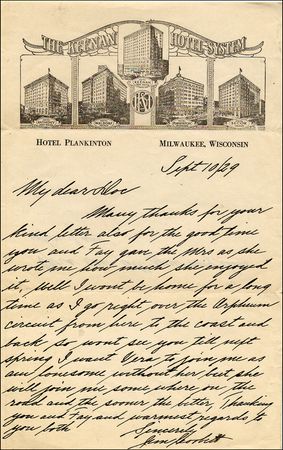 THE KEENAN HOTEL SYSTEM
HOTEL PLANKINTON MILWAUKEE, WISCONSIN
Sept 10/29
My dear Doc
Many thanks for your
kind letter also for the good time
you and Fay gave the Mrs as she
wrote me how much she enjoyed
it. Well I wont be home for a long
time as I go right over the Orpheum
circuit from here to the coast and
back so wont see you till next
spring I want Vera to join me as
am lonesome without her but she
will join me some where on the
road and the sooner the better, Thanking
you and Fay and warmest regards to
you both
Sincerely
Jim Corbett